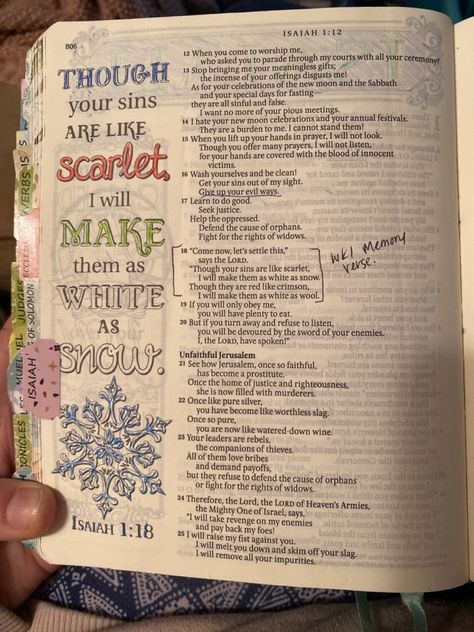 ISAIAH 1:12
806
THOUGH
your sins
ARE LIKE
scarlet,
I will
MAKE
them as
WHITE
AS
SNOW.
ISAIAH 1:18
12 When you come to worship me,
who asked you to parade through my courts with all your ceremony?
13 Stop bringing me your meaningless gifts;
the incense of your offerings disgusts me!
As for your celebrations of the new moon and the Sabbath
and your special days for fasting—
they are all sinful and false.
I want no more of your pious meetings.
14 I hate your new moon celebrations and your annual festivals.
They are a burden to me. I cannot stand them!
15 When you lift up your hands in prayer, I will not look.
Though you offer many prayers, I will not listen,
for your hands are covered with the blood of innocent
victims.
16 Wash yourselves and be clean!
Get your sins out of my sight.
Give up your evil ways.
17 Learn to do good.
Seek justice.
Help the oppressed.
Defend the cause of orphans.
Fight for the rights of widows.
18 "Come now, let's settle this,"
says the LORD.
"Though your sins are like scarlet,
I will make them as white as snow.
Though they are red like crimson,
I will make them as white as wool.
wk1 Memory
verse.
19 If you will only obey me,
you will have plenty to eat.
20 But if you turn away and refuse to listen,
you will be devoured by the sword of your enemies.
I, the LORD, have spoken!"
Unfaithful Jerusalem
21 See how Jerusalem, once so faithful,
has become a prostitute.
Once the home of justice and righteousness,
she is now filled with murderers.
22 Once like pure silver,
you have become like worthless slag.
Once so pure,
you are now like watered-down wine.
23 Your leaders are rebels,
the companions of thieves.
All of them love bribes
and demand payoffs,
but they refuse to defend the cause of orphans
or fight for the rights of widows.
24 Therefore, the Lord, the LORD of Heaven's Armies,
the Mighty One of Israel, says,
"I will take revenge on my enemies
and pay back my foes!
25 I will raise my fist against you.
I will melt you down and skim off your slag.
I will remove all your impurities.
ISAIAH
OF SOLOMON
JUDGES